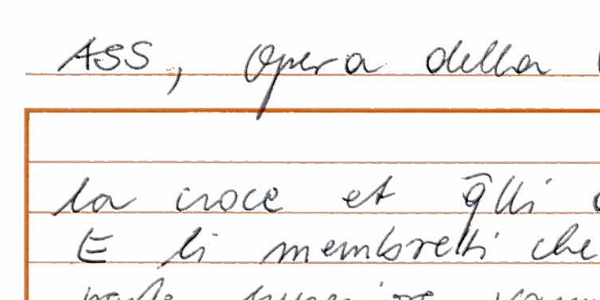 ASS, Opera della
la croce et q̄lli
E li membretti che